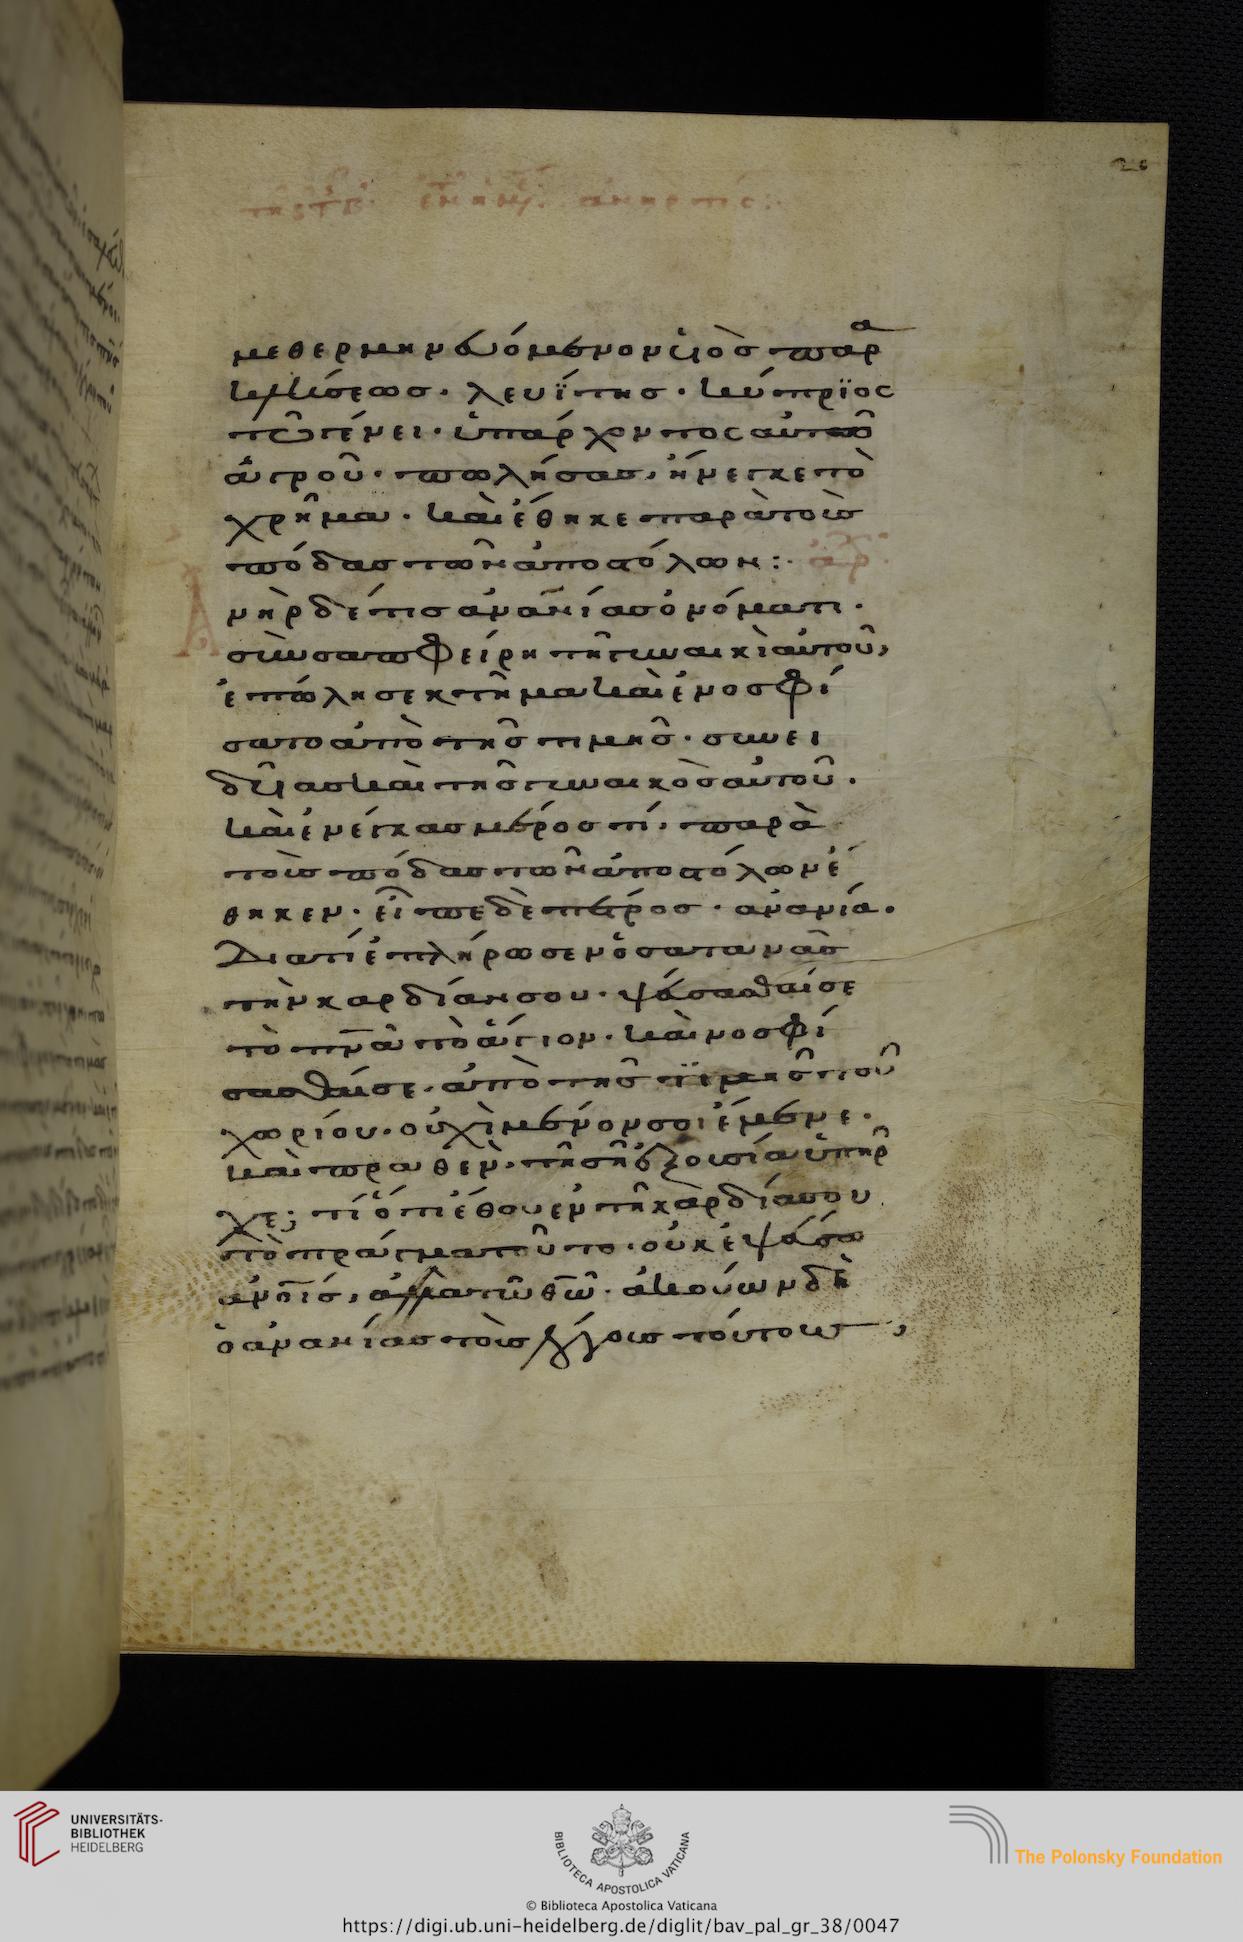 26
μεθερμηνευόμενον υἱὸσ παρα
κλήσεωσ· λευΐτησ· κύπριος
τῶ γένει· ὑπάρχοντος αὐτοῦ
ἀγροῦ· πωλήσασ, ἤνεγκε τὸ
χρῆμα· καὶ ἔθηκε παρὰ τοὺσ
πόδασ τῶν ἀποστόλων:·
Ἀνὴρ δέ τισ ἀνανίασ ὀνόματι·
σὺν σαπφείρη τῆ γυναικὶ αὐτοῦ,
ἐπώλησε κτῆμα καὶ ἐνοσφί
σατο ἀπὸ τῆσ τιμῆσ· συνει
δυίασ καὶ τῆσ γυναικὸσ αὐτοῦ·
καὶ ἐνέγκασ μέροσ τί, παρὰ
τοὺσ πόδασ τῶν ἀποστόλων ἔ
θηκεν· εἶπε δὲ πέτροσ· ἀνανία·
Διατί ἐπλήρωσεν ὁ σατανᾶσ
τὴν καρδίαν σου· ψεύσασθαί σε
τὸ πνᾶ τὸ ἅγιον· καὶ νοσφί
σασθαί σε, ἀπὸ τῆσ τϊμῆσ τοῦ
χωρίου· οὐχὶ μένον σοι ἔμενε·
καὶ πραθὲν, τῆ σῆ ἐξουσία ὑπῆρ
χε; τί ὅτι ἔθου ἐν τῆ καρδία σου
τὸ πρᾶγμα τοῦτο· οὐκ ἐψεύσω
ἀνοῖσ, ἀλλὰ τῶ θῶ· ἀκούων δὲ
ὁ ἀνανίασ τοὺσ λόγουσ τούτουσ,
UNIVERSITÄTS-
BIBLIOTHEK
HEIDELBERG
BIBLIOTECA APOSTOLICA VATICANA
The Polonsky Foundation
© Biblioteca Apostolica Vaticana
https://digi.ub.uni-heidelberg.de/diglit/bav_pal_gr_38/0047